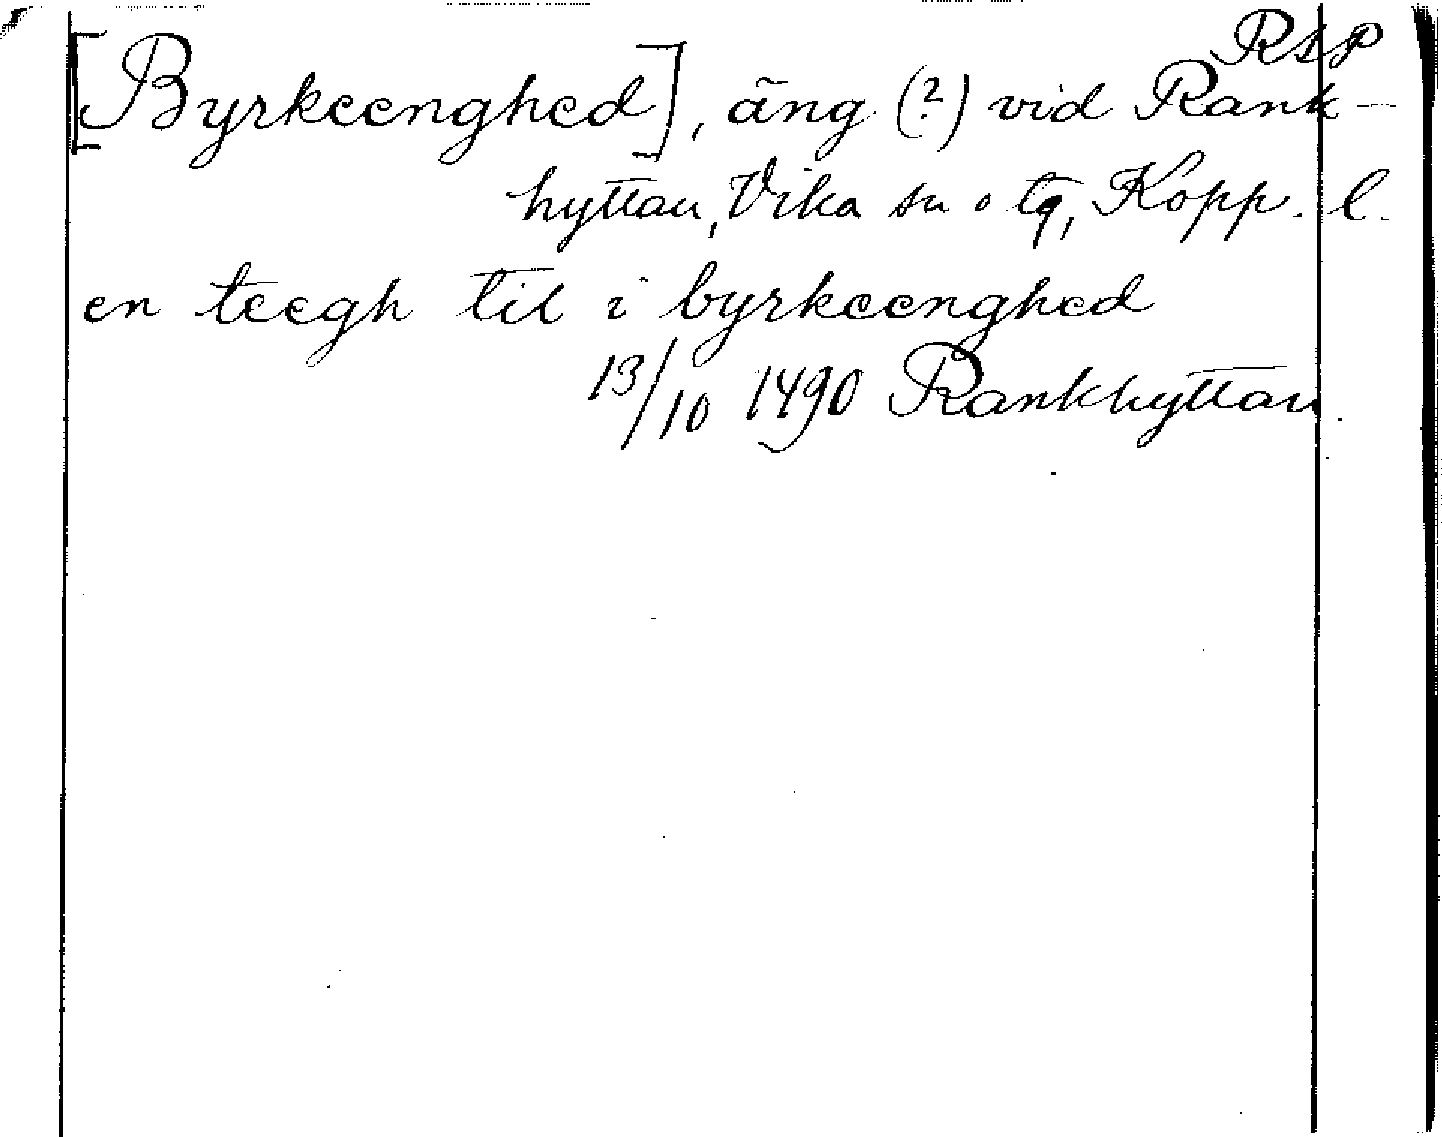 RAP
[Byrkeenghed], äng (?) vid Rank-
hyttan, Vika sn o tg, Kopp. l.
en teegh til i byrkeenghed
13/10 1490 Rankhyttan.